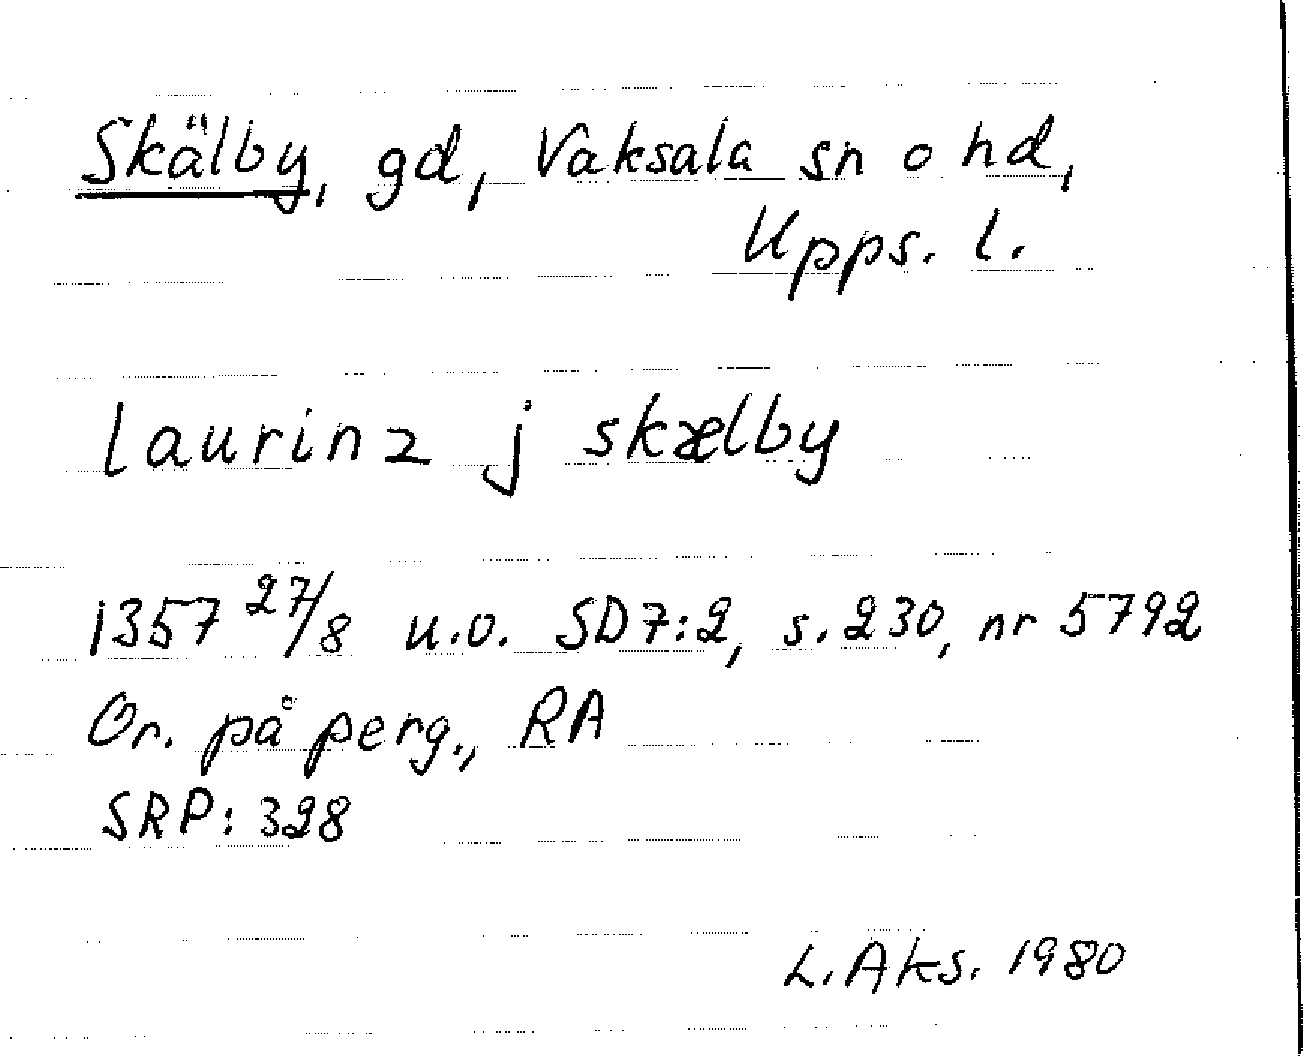 Skälby, gd, Vaksala sn o hd,
Upps. l.
laurinz j skælby
1357 27/8 u.o. SD7:2, s. 230, nr 5792
Or. på perg., RA
SRP: 328
L. Aks. 1980